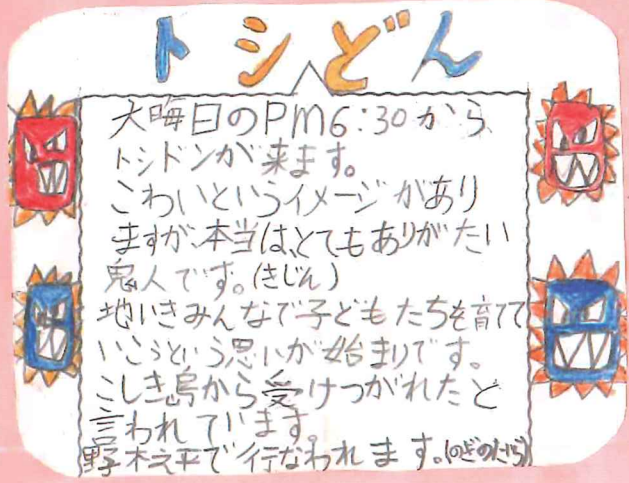 トシどん
大晦日のPM6:30から
トシドンが来ます。
こわいというイメージがあり
ますが、本当は、とてもありがたい
鬼人です。(きじん)
地いきみんなで子どもたちを育てて
いこうという思いが始まりです。
こしき島から受けつがれたと
言われています。
野木之平で行なわれます。(のぎのたいら)